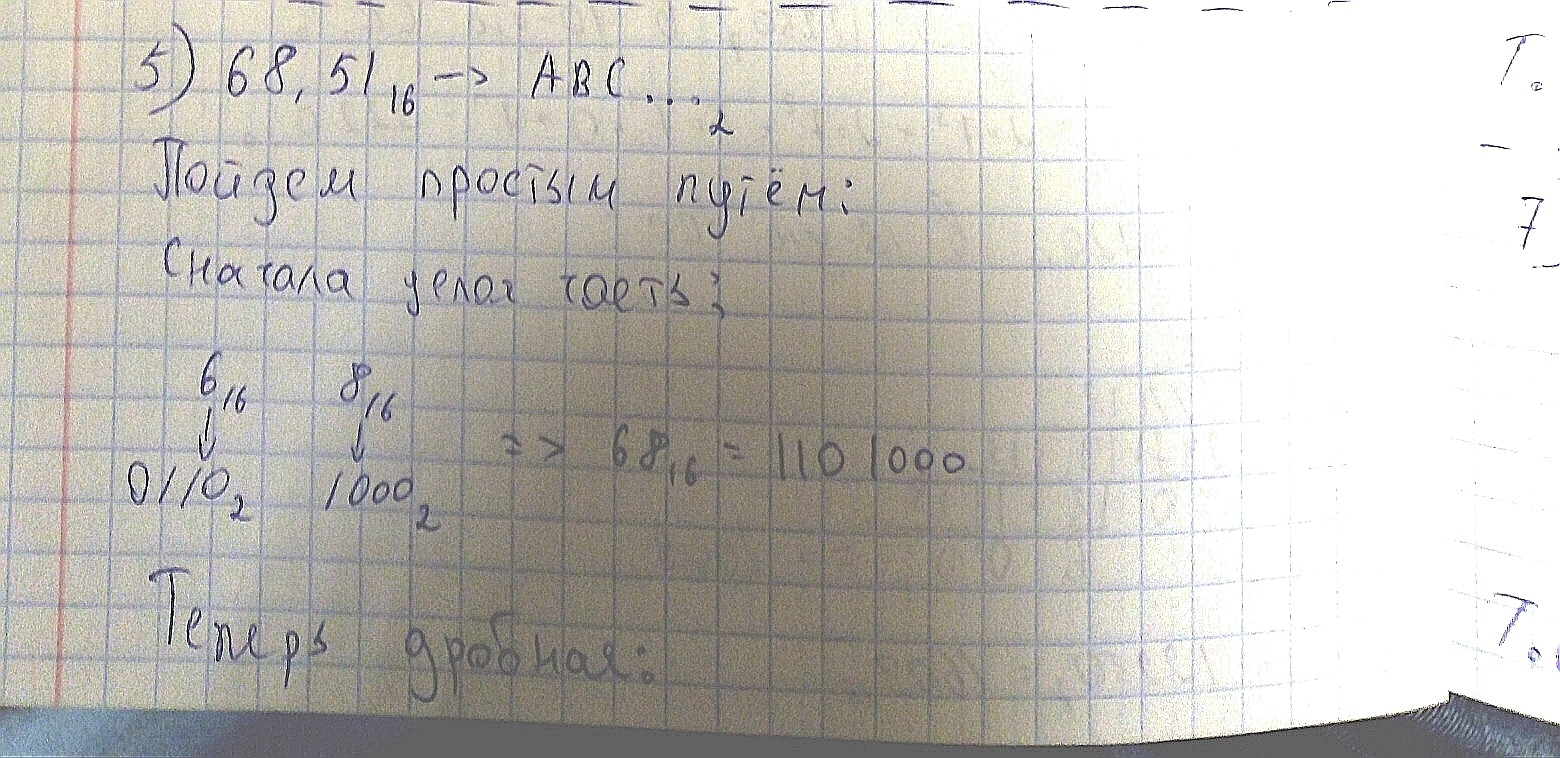 5) 68,51₁₆ -> ABC...₂
Пойдем простым путём:
Сначала целая часть:
6₁₆ 8₁₆
↓ ↓
0110₂ 1000₂ => 68₁₆ = 1101000
Теперь дробная:
T.
7
T.